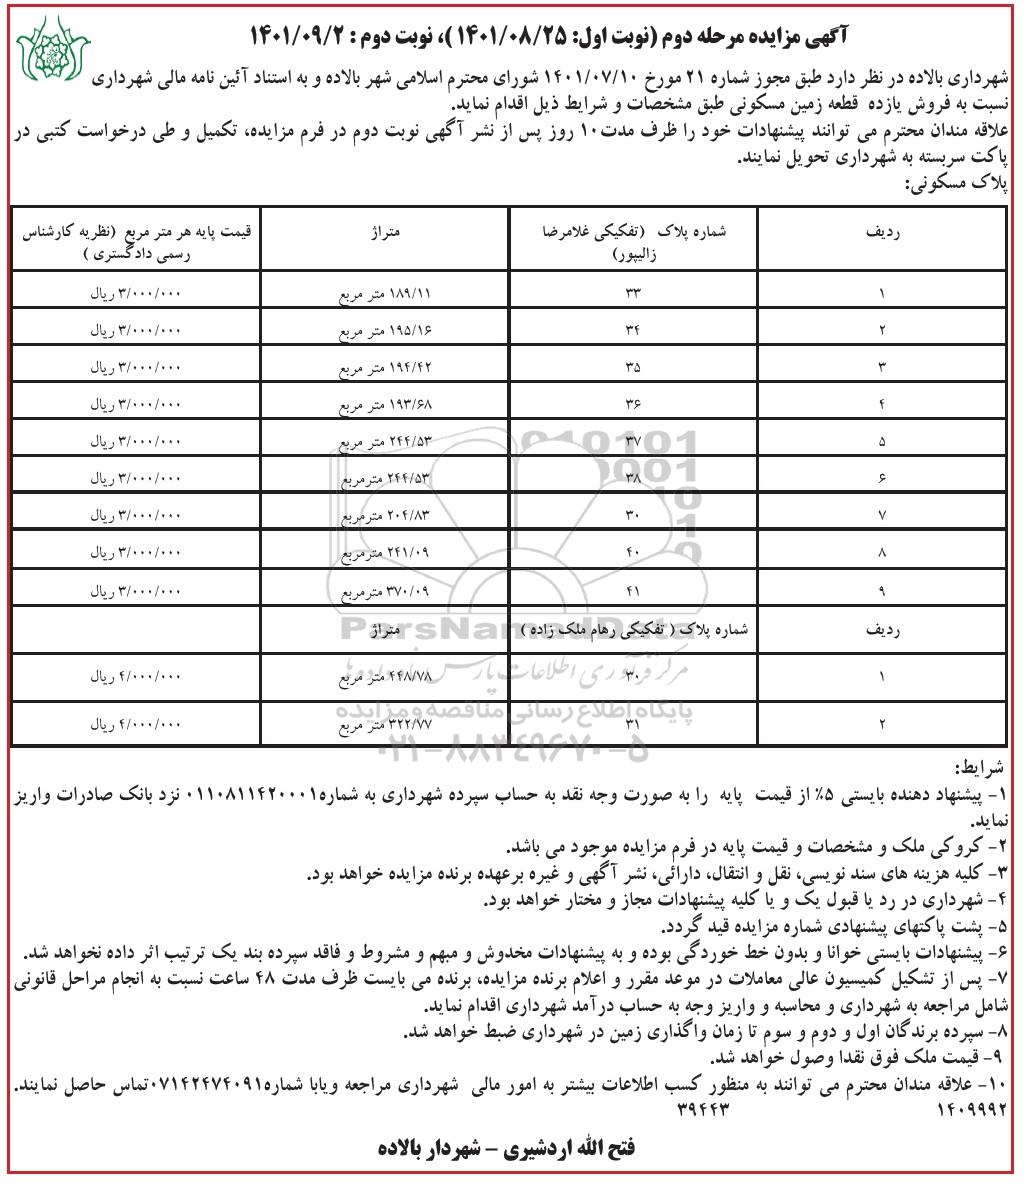 آگهی مزایده مرحله دوم (نوبت اول: ۱۴۰۱/۰۸/۲۵ )، نوبت دوم : ۱۴۰۱/۰۹/۲
شهرداری بالاده در نظر دارد طبق مجوز شماره ۲۱ مورخ ۱۴۰۱/۰۷/۱۰ شورای محترم اسلامی شهر بالاده و به استناد آئین نامه مالی شهرداری
نسبت به فروش یازده قطعه زمین مسکونی طبق مشخصات و شرایط ذیل اقدام نماید.
علاقه مندان محترم می توانند پیشنهادات خود را ظرف مدت۱۰ روز پس از نشر آگهی نوبت دوم در فرم مزایده، تکمیل و طی درخواست کتبی در
پاکت سربسته به شهرداری تحویل نمایند.
پلاک مسکونی:
ردیف شماره پلاک (تفکیکی غلامرضا زالیپور) متراژ قیمت پایه هر متر مربع (نظریه کارشناس رسمی دادگستری )
۱ ۳۳ ۱۸۹/۱۱ متر مربع ۳/۰۰۰/۰۰۰ ریال
۲ ۳۴ ۱۹۵/۱۶ متر مربع ۳/۰۰۰/۰۰۰ ریال
۳ ۳۵ ۱۹۴/۴۲ متر مربع ۳/۰۰۰/۰۰۰ ریال
۴ ۳۶ ۱۹۳/۶۸ متر مربع ۳/۰۰۰/۰۰۰ ریال
۵ ۳۷ ۲۴۴/۵۳ متر مربع ۳/۰۰۰/۰۰۰ ریال
۶ ۳۸ ۲۴۴/۵۳ مترمربع ۳/۰۰۰/۰۰۰ ریال
۷ ۳۰ ۲۰۴/۸۳ مترمربع ۳/۰۰۰/۰۰۰ ریال
۸ ۴۰ ۲۴۱/۰۹ مترمربع ۳/۰۰۰/۰۰۰ ریال
۹ ۴۱ ۳۷۰/۰۹ مترمربع ۳/۰۰۰/۰۰۰ ریال
ردیف شماره پلاک ( تفکیکی رهام ملک زاده ) متراژ
۱ ۳۰ ۴۴۸/۷۸ متر مربع ۴/۰۰۰/۰۰۰ ریال
۲ ۳۱ ۳۲۲/۷۷ متر مربع ۴/۰۰۰/۰۰۰ ریال
ParsNamadData
مرکز فرآوری اطلاعات پارس نماد داده ها
پایگاه اطلاع رسانی مناقصه و مزایده
۰۲۱-۸۸۳۴۹۶۷۰-۵
شرایط:
۱- پیشنهاد دهنده بایستی ۵٪ از قیمت پایه را به صورت وجه نقد به حساب سپرده شهرداری به شماره۰۱۱۰۸۱۱۴۲۰۰۰۱ نزد بانک صادرات واریز
نماید.
۲- کروکی ملک و مشخصات و قیمت پایه در فرم مزایده موجود می باشد.
۳- کلیه هزینه های سند نویسی، نقل و انتقال، دارائی، نشر آگهی و غیره برعهده برنده مزایده خواهد بود.
۴- شهرداری در رد یا قبول یک و یا کلیه پیشنهادات مجاز و مختار خواهد بود.
۵- پشت پاکتهای پیشنهادی شماره مزایده قید گردد.
۶- پیشنهادات بایستی خوانا و بدون خط خوردگی بوده و به پیشنهادات مخدوش و مبهم و مشروط و فاقد سپرده بند یک ترتیب اثر داده نخواهد شد.
۷- پس از تشکیل کمیسیون عالی معاملات در موعد مقرر و اعلام برنده مزایده، برنده می بایست ظرف مدت ۴۸ ساعت نسبت به انجام مراحل قانونی
شامل مراجعه به شهرداری و محاسبه و واریز وجه به حساب درآمد شهرداری اقدام نماید.
۸- سپرده برندگان اول و دوم و سوم تا زمان واگذاری زمین در شهرداری ضبط خواهد شد.
۹- قیمت ملک فوق نقدا وصول خواهد شد.
۱۰- علاقه مندان محترم می توانند به منظور کسب اطلاعات بیشتر به امور مالی شهرداری مراجعه ویابا شماره۰۷۱۴۲۴۷۴۰۹۱تماس حاصل نمایند.
۱۴۰۹۹۹۲ ۳۹۴۴۳
فتح الله اردشیری – شهردار بالاده